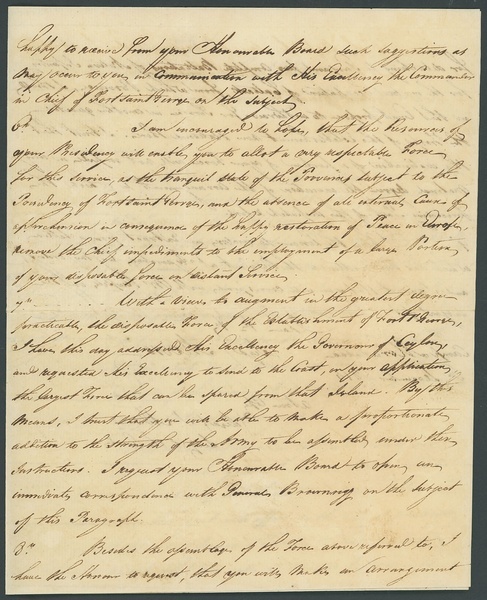 happy to receive from your Honourable Board such suggestions as
may occur to you, in Communication with His Excellency the Commander
in Chief of Fort Saint George on the Subject
6th I am encouraged to hope, that the Resources of
your Presidency will enable you to allot a very respectable Force
for this Service, as the tranquil state of the Provinces subject to the
Presidency of Fort Saint George, and the absence of all external Cause of
apprehension in consequence of the happy restoration of Peace in Europe,
remove the Chief impediments to the employment of a large Portion
of your disposable force on distant Service
7th With views to augment in the greatest degree
practicable, the disposable Force of the Establishment of Fort St George,
I have this day addressed His Excellency the Governour of Ceylon,
and requested His Excellency to send to the Coast, on your application,
the largest Force that can be spared from that Island. By this
means, I trust that you will be able to make a proportional
addition to the strength of the Army to be assembled under these
Instructions. I request your Honourable Board to open an
immediate correspondence with General Brownrigg on the Subject
of this Paragraph.
8th Besides the assemblage of the Force above referred to, I
have the Honour to request, that you will make an arrangement